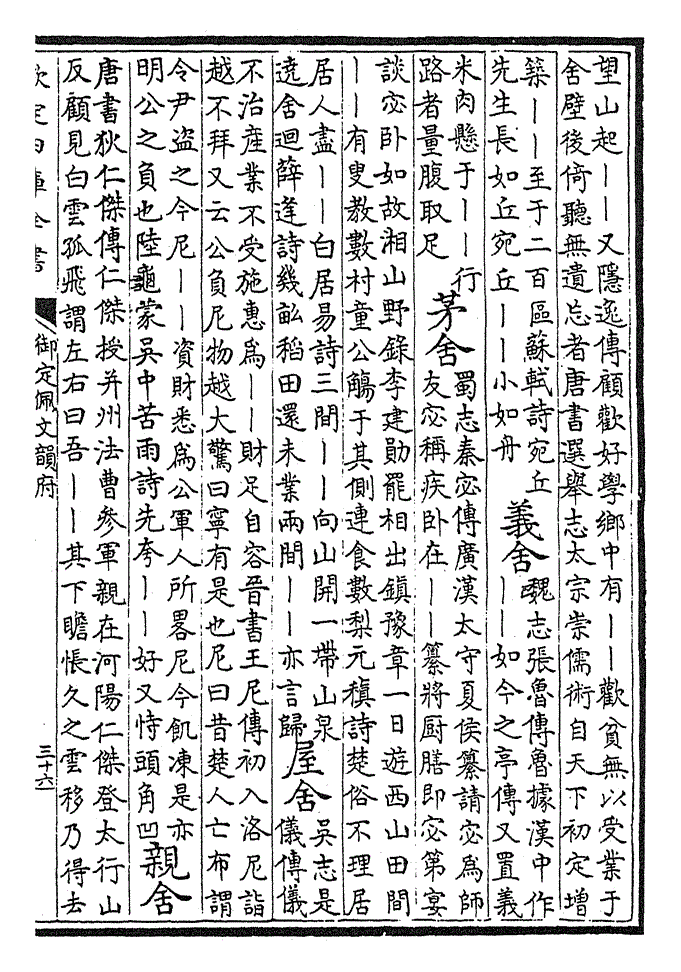 望山起丨丨又隱逸傳顧歡好學鄉中有丨丨歡貧無以受業于
舍壁後倚聽無遺忘者唐書選舉志太宗崇儒術自天下初定增
築丨丨至于二百區蘇軾詩宛丘
先生長如丘宛丘丨丨小如舟
義舍
魏志張魯傳魯據漢中作
丨丨如今之亭傳又置義
米肉懸于丨丨行
路者量腹取足
茅舍
蜀志秦宓傳廣漢太守夏侯纂請宓為師
友宓稱疾卧在丨丨纂將厨膳即宓第宴
談宓卧如故湘山野錄李建勛罷相出鎮豫章一日遊西山田間
丨丨有叟教數村童公觴于其側連食數梨元稹詩楚俗不理居
居人盡丨丨白居易詩三間丨丨向山開一帶山泉
遶舍迴薛逢詩幾畝稻田還未業兩間丨丨亦言歸
屋舍
吳志是
儀傳儀
不治產業不受施惠為丨丨財足自容晉書王尼傳初入洛尼詣
越不拜又云公負尼物越大驚曰寧有是也尼曰昔楚人亡布謂
令尹盜之今尼丨丨資財悉為公軍人所畧尼今飢凍是亦
明公之負也陸龜蒙吳中苦雨詩先夸丨丨好又恃頭角凹
親舍
唐書狄仁傑傳仁傑授并州法曹參軍親在河陽仁傑登太行山
反顧見白雲孤飛謂左右曰吾丨丨其下瞻悵久之雲移乃得去
欽定四庫全書
御定佩文韻府
三十六